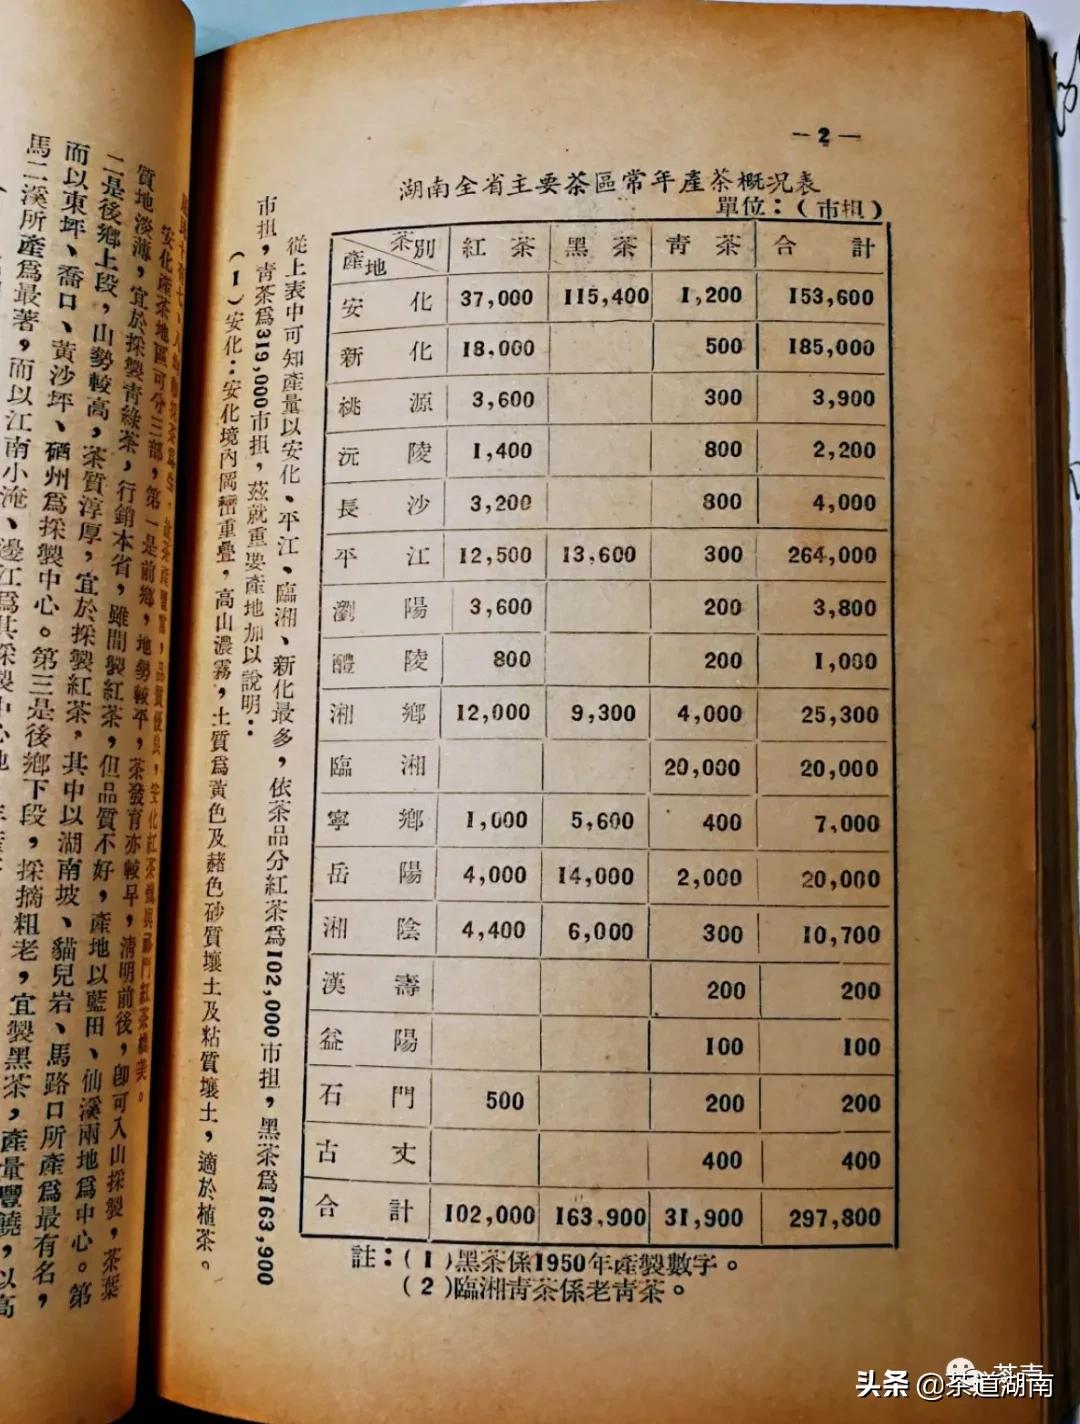 —2—
湖南全省主要茶區常年產茶概況表
單位：（市担）
產地 茶別 紅茶 黑茶 靑茶 合計
安化 37,000 115,400 1,200 153,600
新化 18,000 500 185,000
桃源 3,600 300 3,900
沅陵 1,400 800 2,200
長沙 3,200 800 4,000
平江 12,500 13,600 300 264,000
瀏陽 3,600 200 3,800
醴陵 800 200 1,000
湘鄉 12,000 9,300 4,000 25,300
臨湘 20,000 20,000
寧鄉 1,000 5,600 400 7,000
岳陽 4,000 14,000 2,000 20,000
湘陰 4,400 6,000 300 10,700
漢壽 200 200
益陽 100 100
石門 500 200 200
古丈 400 400
合計 102,000 163,900 31,900 297,800
註：（1）黑茶係1950年產製數字。
（2）臨湘靑茶係老靑茶。
從上表中可知產量以安化、平江、臨湘、新化最多，依茶品分紅茶爲102,000市担，黑茶爲163,900
市担，靑茶爲319,000市担，茲就重要產地加以說明：
（1）安化：安化境內岡巒重疊，高山濃霧，土質爲黃色及赭色砂質壤土及粘質壤土，適於植茶。
安化產茶地區可分三部，第一是前鄉，地勢較平，茶發育亦較早，清明前後，卽可入山採製，茶葉
質地淡薄，宜於採製靑綠茶，行銷本省，雖間製紅茶，但品質不好，產地以藍田、仙溪兩地爲中心。第
二是後鄉上段，山勢較高，茶質淳厚，宜於採製紅茶，其中以湖南坡、貓兒岩、馬路口所產爲最有名，
而以東坪、喬口、黃沙坪、硒州爲採製中心。第三是後鄉下段，採摘粗老，宜製黑茶，產量豐饒，以高
馬二溪所產爲最著，而以江南小淹、邊江爲其採製中心地
头条 @茶道湖南